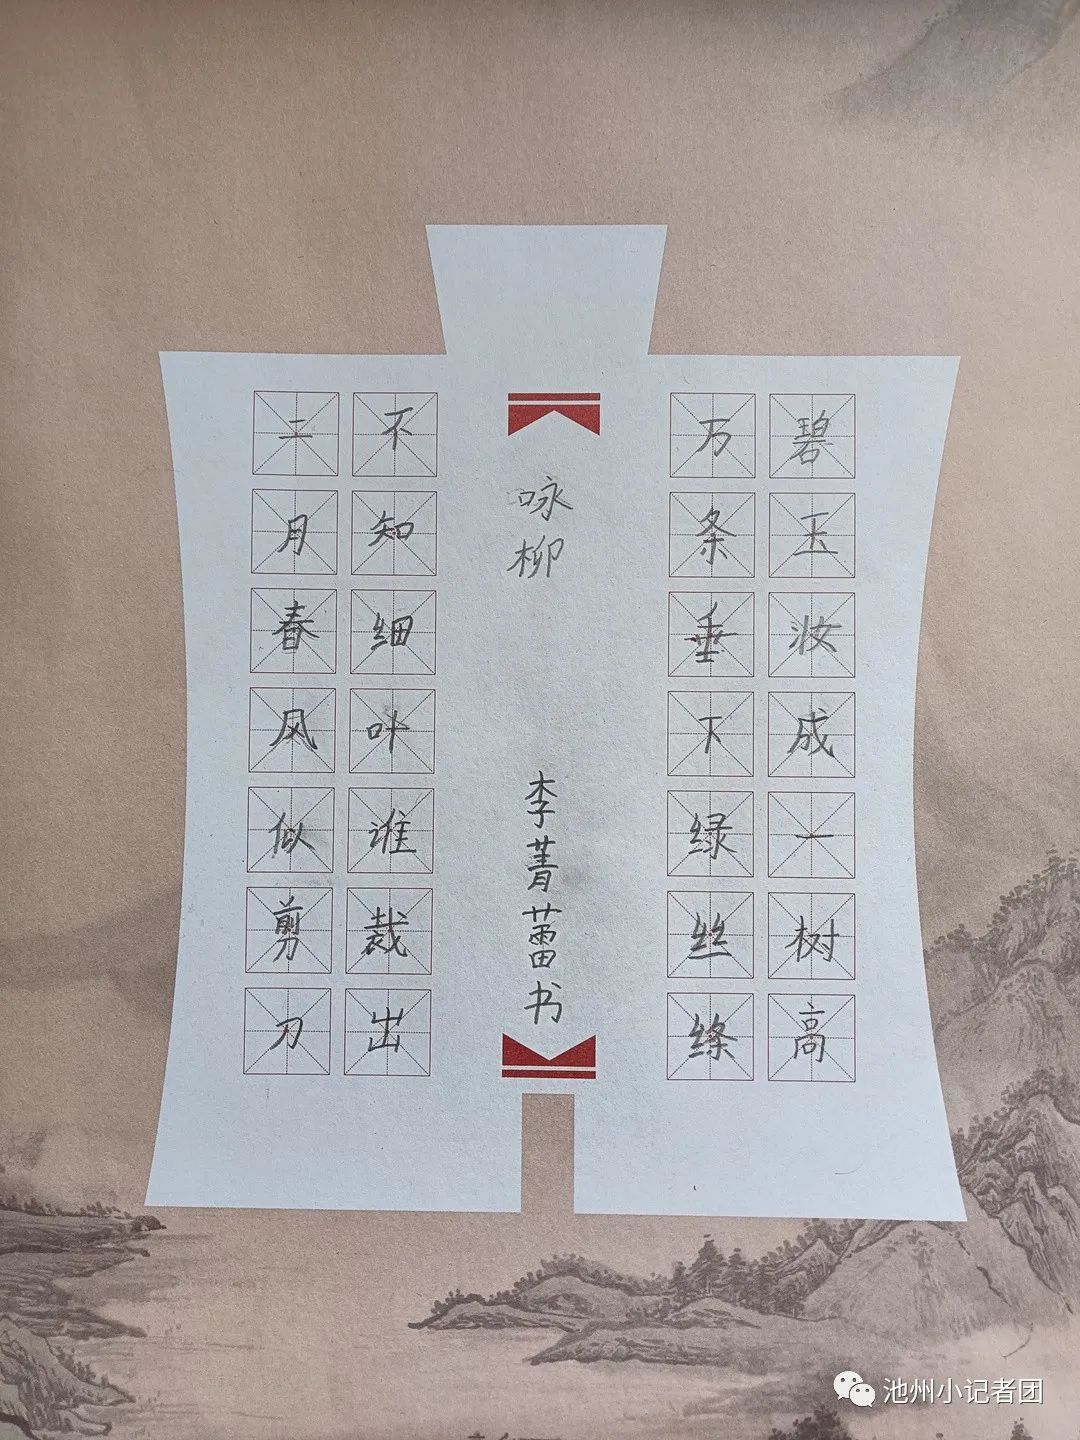 碧玉妆成一树高
万条垂下绿丝绦
咏柳
李菁蕾书
不知细叶谁裁出
二月春风似剪刀
池州小记者团